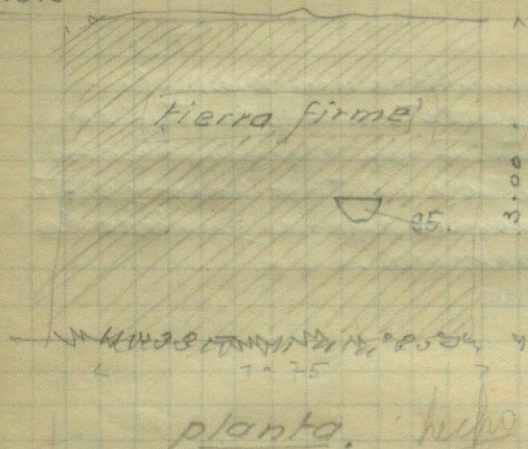 tierra firme
3.00.
25.
planta.
hecho